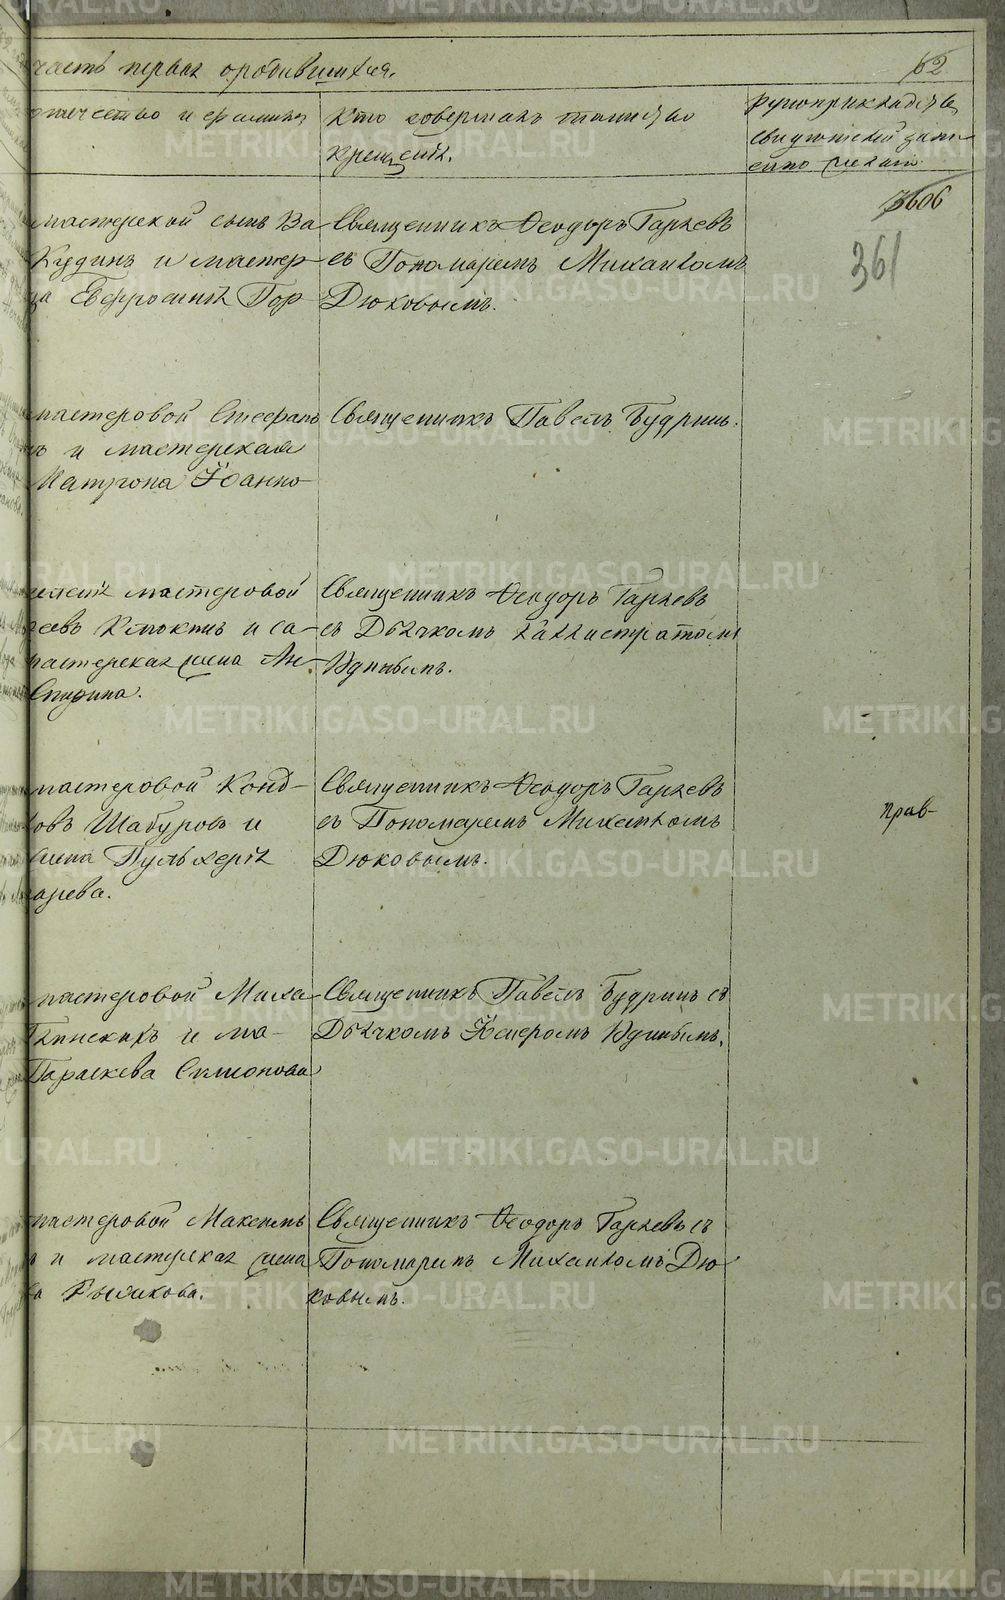 часть первая о родившихся.
62
отчество и фамилия
Кто совершалъ таинство
крещенія.
рукоприкладство
свидѣтелей записи
по желанію
3606
361
мастерской сынъ Ва
Кудинъ и мастер-
ца Евфросинія Гор
Священникъ Ѳеодоръ Гаряевъ
съ Пономаремъ Михаиломъ
Дюковымъ.
мастеровой Стефанъ
ъ и мастерская
Матрона Іоанно
Священникъ Павелъ Будринъ.
мастеровой
и за-
мастерская жена Ан
Спирина.
Священникъ Ѳеодоръ Гаряевъ
съ Дьячкомъ Каллистратомъ
Удинцымъ.
мастеровой Конд-
овъ Шабуровъ и
жена Пульхерія
арева.
Священникъ Ѳеодоръ Гаряевъ
съ Пономаремъ Михаиломъ
Дюковымъ.
прав-
мастеровой Миха
и ма-
Параскева Симонова
Священникъ Павелъ Будринъ съ
Дьячкомъ Удинцымъ.
мастеровой Максимъ
ъ и мастерская жена
ва Рысакова.
Священникъ Ѳеодоръ Гаряевъ съ
Пономаремъ Михаиломъ Дю
ковымъ.
METRIKI.GASO-URAL.RU